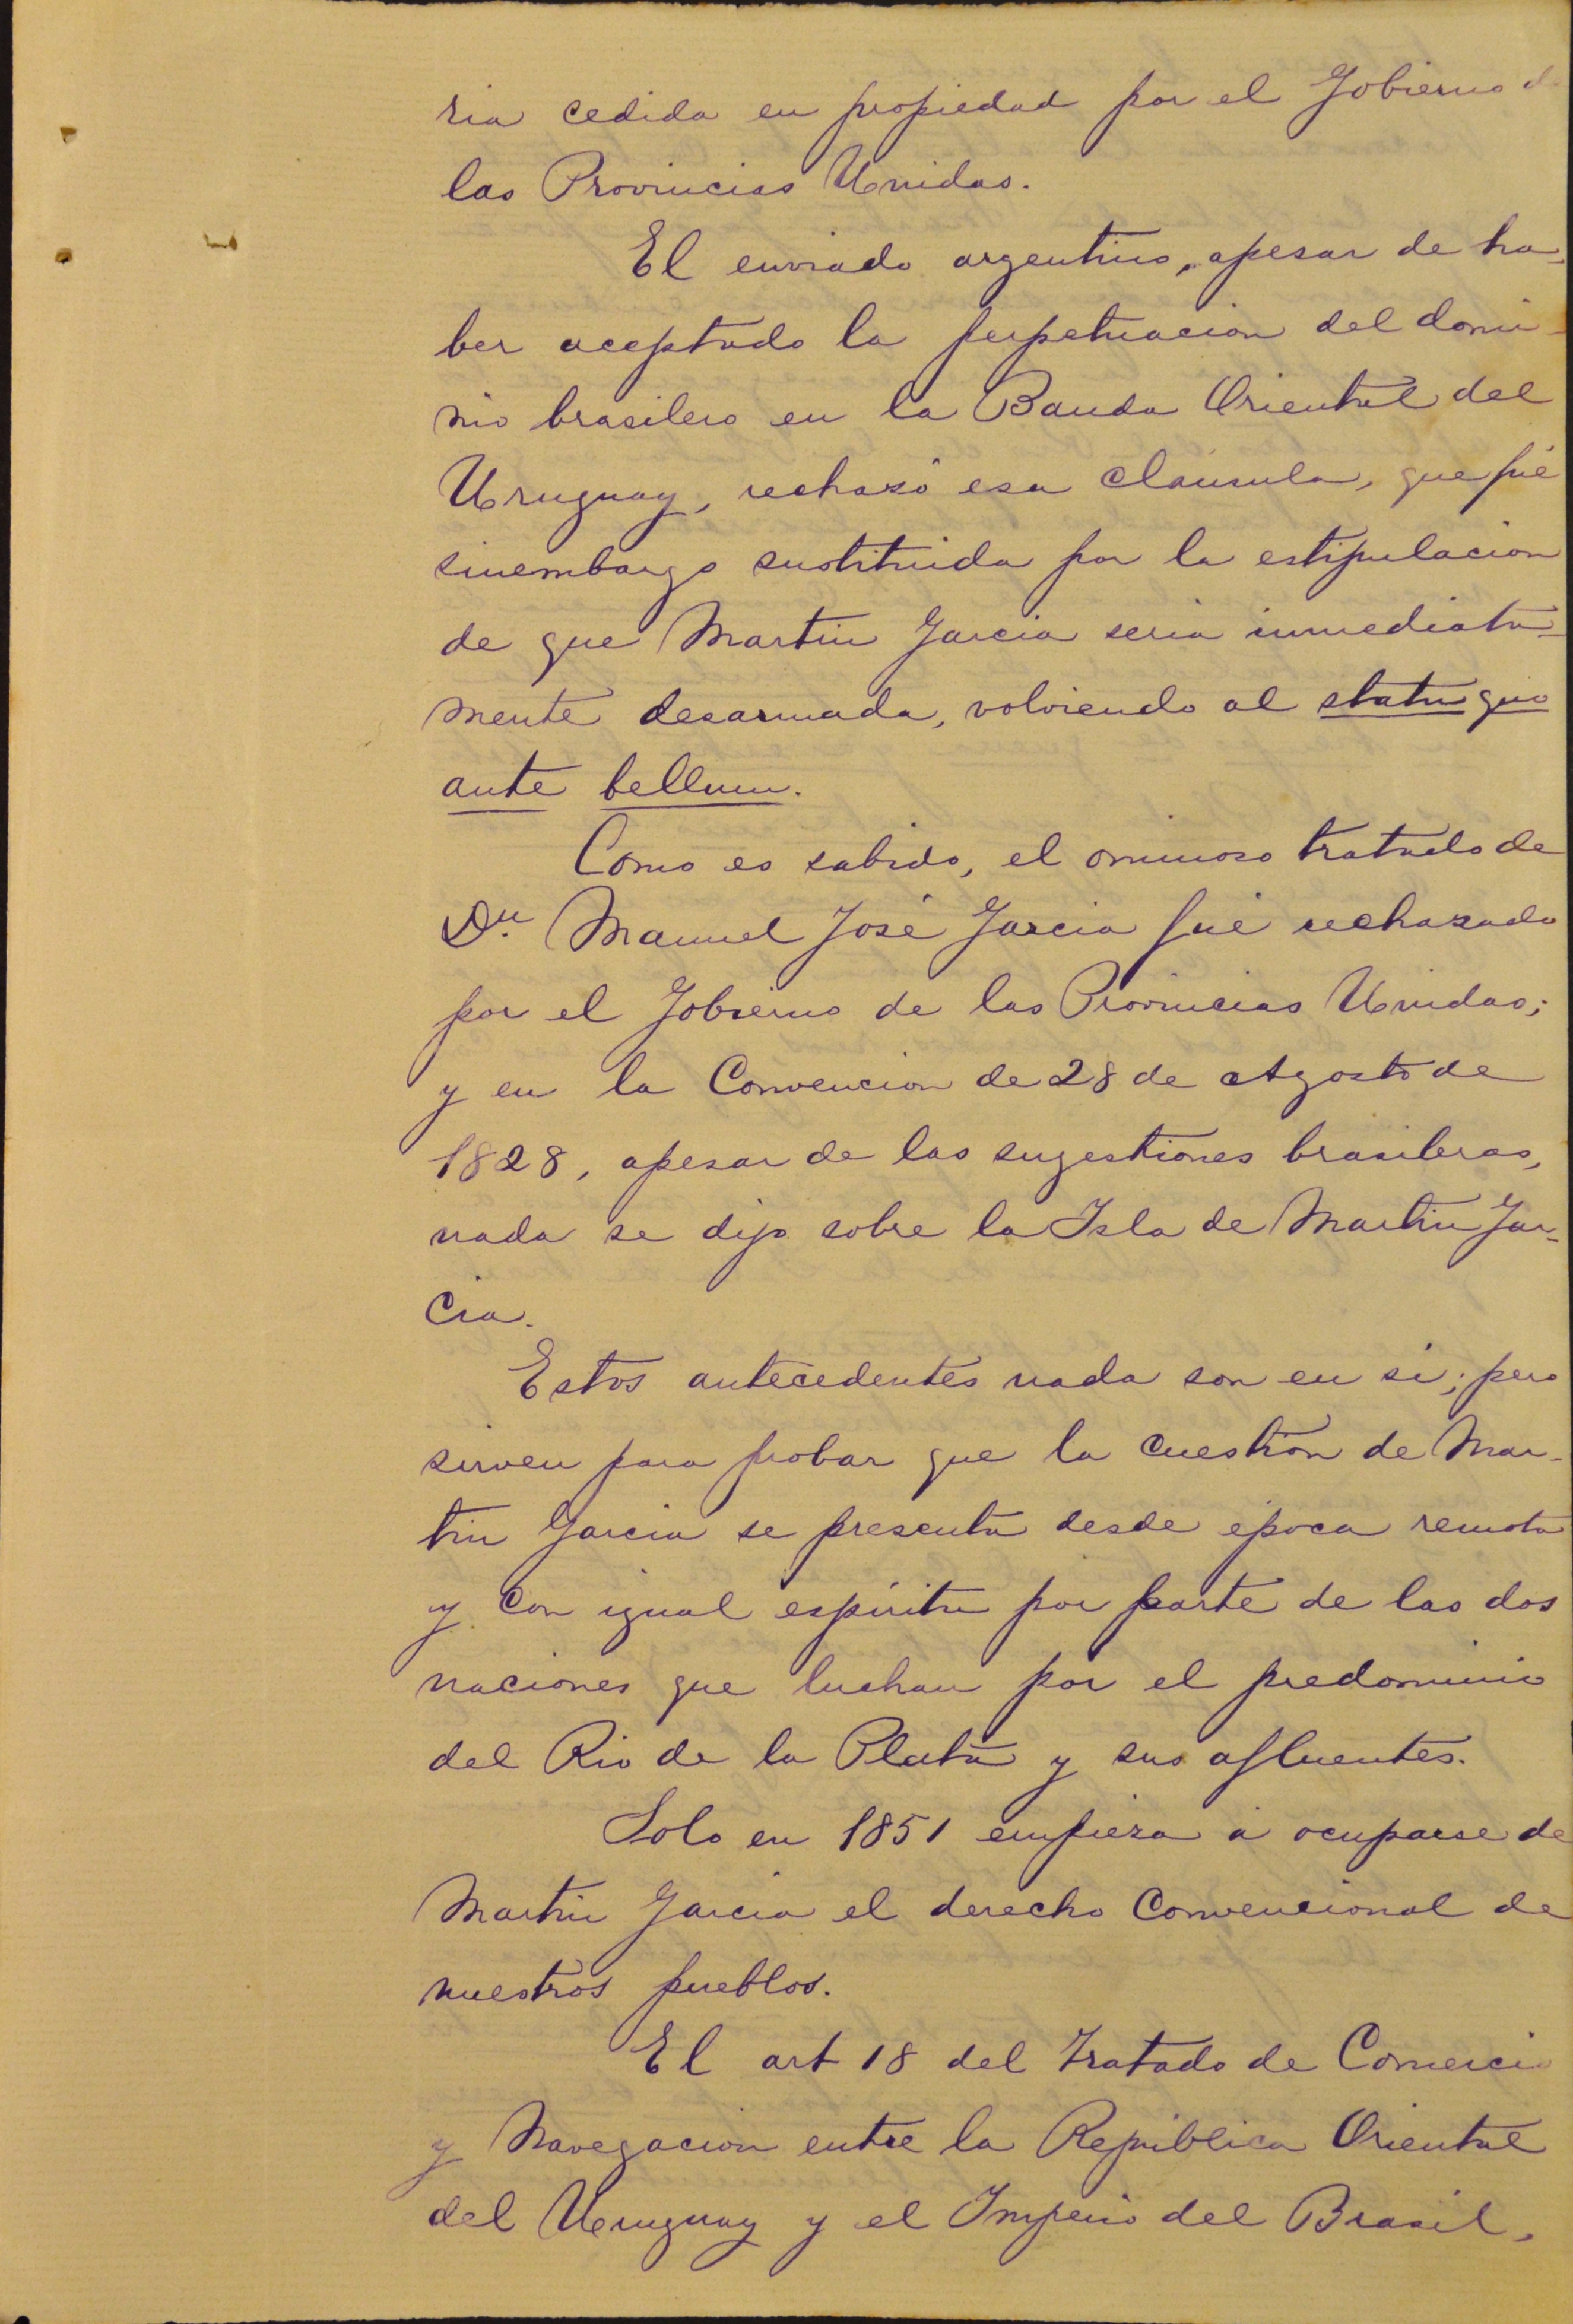 ria cedida en propiedad por el Gobierno d
las Provincias Unidas.
El enviado argentino, apesar de ha-
ber aceptado la perpetuacion del domi-
nio brasilero en la Banda Oriental del
Uruguay, rechazó esa cláusula, que fué
sinembargo sustituida por la estipulacion
de que Martin Garcia seria inmediata-
mente desarmada, volviendo al statu quo
ante bellum.
Como es sabido, el ominoso tratado de
Dn. Manuel José Garcia fué rechazado
por el Gobierno de las Provincias Unidas;
y en la Convencion de 28 de Agosto de
1828, apesar de las sugestiones brasileras,
nada se dijo sobre la Isla de Martin Gar-
cia.
Estos antecedentes nada son en si; pero
sirven para probar que la cuestion de Mar-
tin Garcia se presenta desde época remota
y con igual espíritu por parte de las dos
naciones que luchan por el predominio
del Rio de la Plata y sus afluentes.
Solo en 1851 empieza á ocuparse de
Martin Garcia el derecho Convencional de
nuestros pueblos.
El art 18 del Tratado de Comercio
y Navegacion entre la República Oriental
del Uruguay y el Imperio del Brasil,